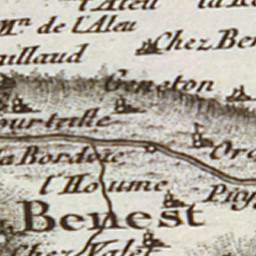 l'Aleu
Mn de l'Aleu
Chez Ben
uillaud
Geneton
ourtille
la Borderie
Oro
l'Houme
Puy
Benest
Chez Valet